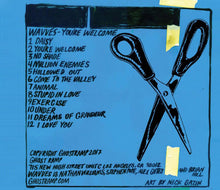 WAVVES-YOU'RE WELCOME
1 DAISY
2 YOU'RE WELCOME
3 NO SHADE
4 MILLION ENEMIES
5 HOLLOWED OUT
6 COME TO THE VALLEY
7 ANIMAL
8 STUPID IN LOVE
9 EXERCISE
10 UNDER
11 DREAMS OF GRANDEUR
12 I LOVE YOU
COPYRIGHT GHOSTRAMP 2017
GHOST RAMP
HIGH STREET LOS ANGELES, CA
WAVVES IS NATHAN WILLIAMS, STEPHEN POPE, ALEX GATES AND BRIAN HILL
GHOSTRAMP.COM
ART BY NICK GAZIN